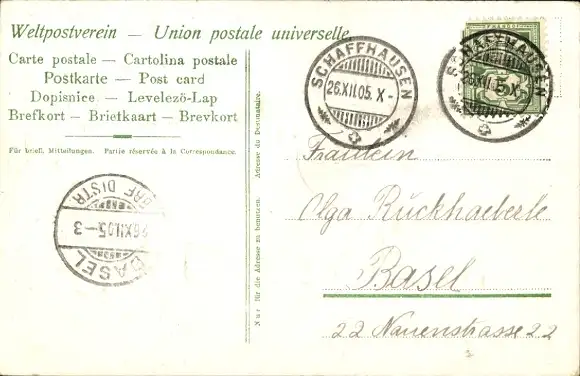 Weltpostverein — Union postale universelle
Carte postale — Cartolina postale
Postkarte — Post card
Dopisnice — Levelező-Lap
Brefkort — Brietkaart — Brevkort
Für briefl. Mitteilungen. Partie réservée à la Correspondance.
Nur für die Adresse zu benutzen. Adresse du Destinataire.
SCHAFFHAUSEN
26.XII.05. X-
SCHAFFHAUSEN
26.XII.05. X-
BASEL
26.XII.05.-3
BRF DISTR
Fräulein
Olga Rückhaeberle
Basel
22 Nauenstrasse 22